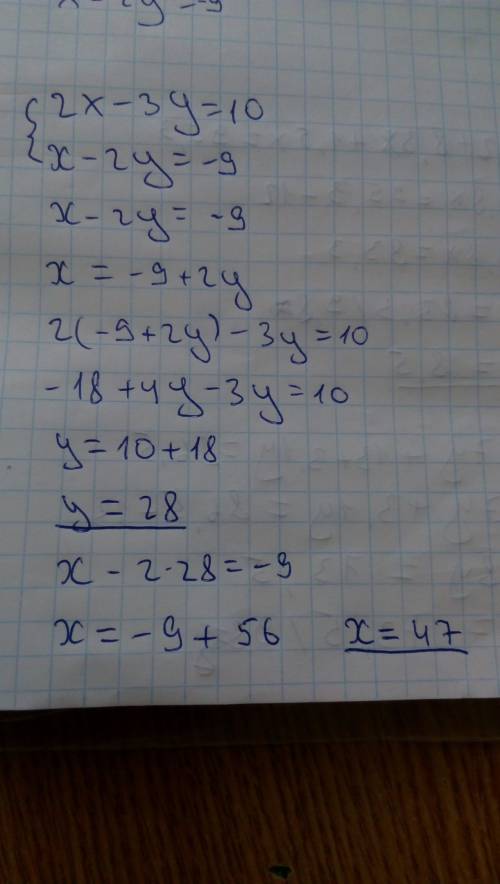 x - 2y = -9
{ 2x - 3y = 10
x - 2y = -9
x - 2y = -9
x = -9 + 2y
2(-9 + 2y) - 3y = 10
-18 + 4y - 3y = 10
y = 10 + 18
y = 28
x - 2 · 28 = -9
x = -9 + 56 x = 47